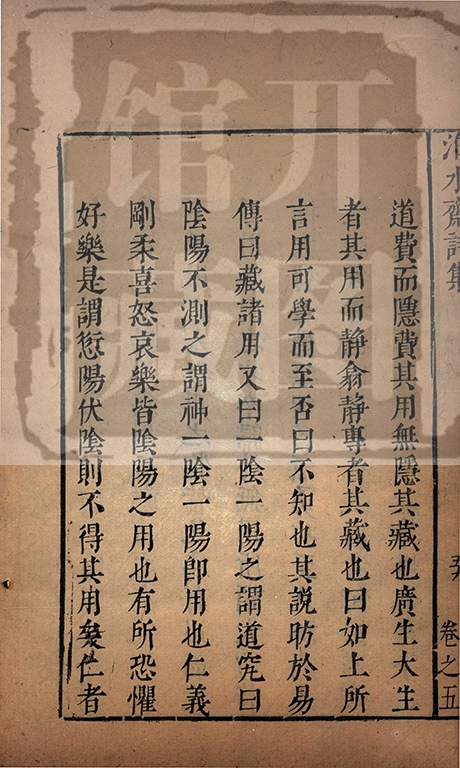 道費而隱費其用無隱其藏也廣生大生
者其用而靜翕靜專者其藏也曰如上所
言用可學而至否曰不知也其說昉於易
傳曰藏諸用又曰一陰一陽之謂道究曰
陰陽不測之謂神一陰一陽卽用也仁義
剛柔喜怒哀樂皆陰陽之用也有所恐懼
好樂是謂愆陽伏陰則不得其用矣仁者
卷之五
开
馆
藏
图